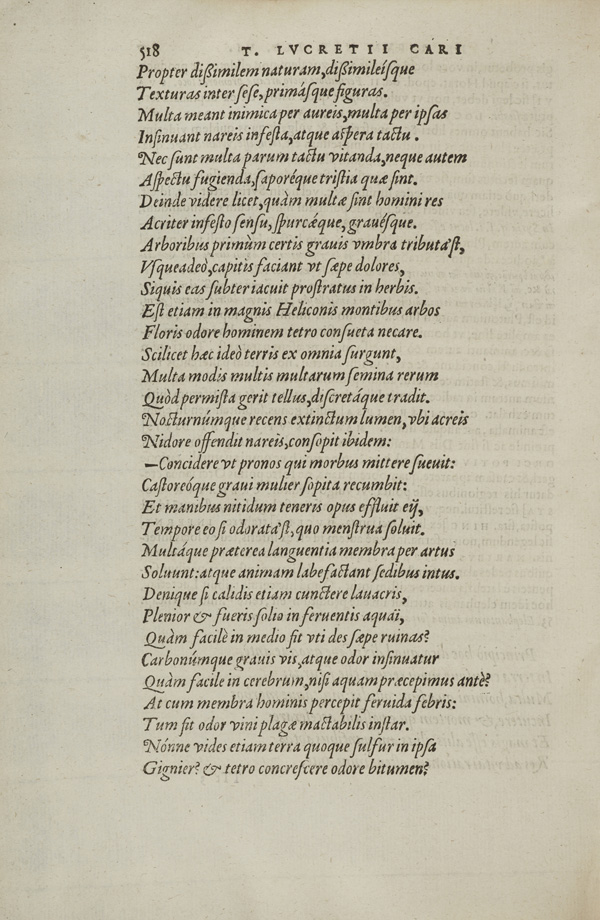 518 T. LVCRETII CARI
Propter dißimilem naturam, dißimileísque
Texturas inter sese, primásque figuras.
Multa meant inimica per aureis, multa per ipsas
Insinuant nareis infesta, atque aspera tactu.
Nec sunt multa parum tactu vitanda, neque autem
Aspectu fugienda, saporéque tristia quæ sint.
Deinde videre licet, quàm multæ sint homini res
Acriter infesto sensu, spurcǽque, grauésque.
Arboribus primùm certis grauis vmbra tributa'st,
Vsqueadeò, capitis faciant vt sæpe dolores,
Siquis eas subter iacuit prostratus in herbis.
Est etiam in magnis Heliconis montibus arbos
Floris odore hominem tetro consueta necare.
Scilicet hæc ideò terris ex omnia surgunt,
Multa modis multis multarum semina rerum
Quòd permista gerit tellus, discretáque tradit.
Nocturnúmque recens extinctum lumen, vbi acreis
Nidore offendit nareis, consopit ibidem:
—Concidere vt pronos qui morbus mittere sueuit:
Castoreóque graui mulier sopita recumbit:
Et manibus nitidum teneris opus effluit eij,
Tempore eo si odorata'st, quo menstrua soluit.
Multáque præterea languentia membra per artus
Soluunt: atque animam labefactant sedibus intus.
Denique si calidis etiam cunctere lauacris,
Plenior & fueris solio in feruentis aquaï,
Quàm facilè in medio fit vti des sæpe ruinas?
Carbonúmque grauis vis, atque odor insinuatur
Quàm facile in cerebrum, nisi aquam præcepimus antè?
At cum membra hominis percepit feruida febris:
Tum fit odor vini plagæ mactabilis instar.
Nónne vides etiam terra quoque sulfur in ipsa
Gignier? & tetro concrescere odore bitumen?